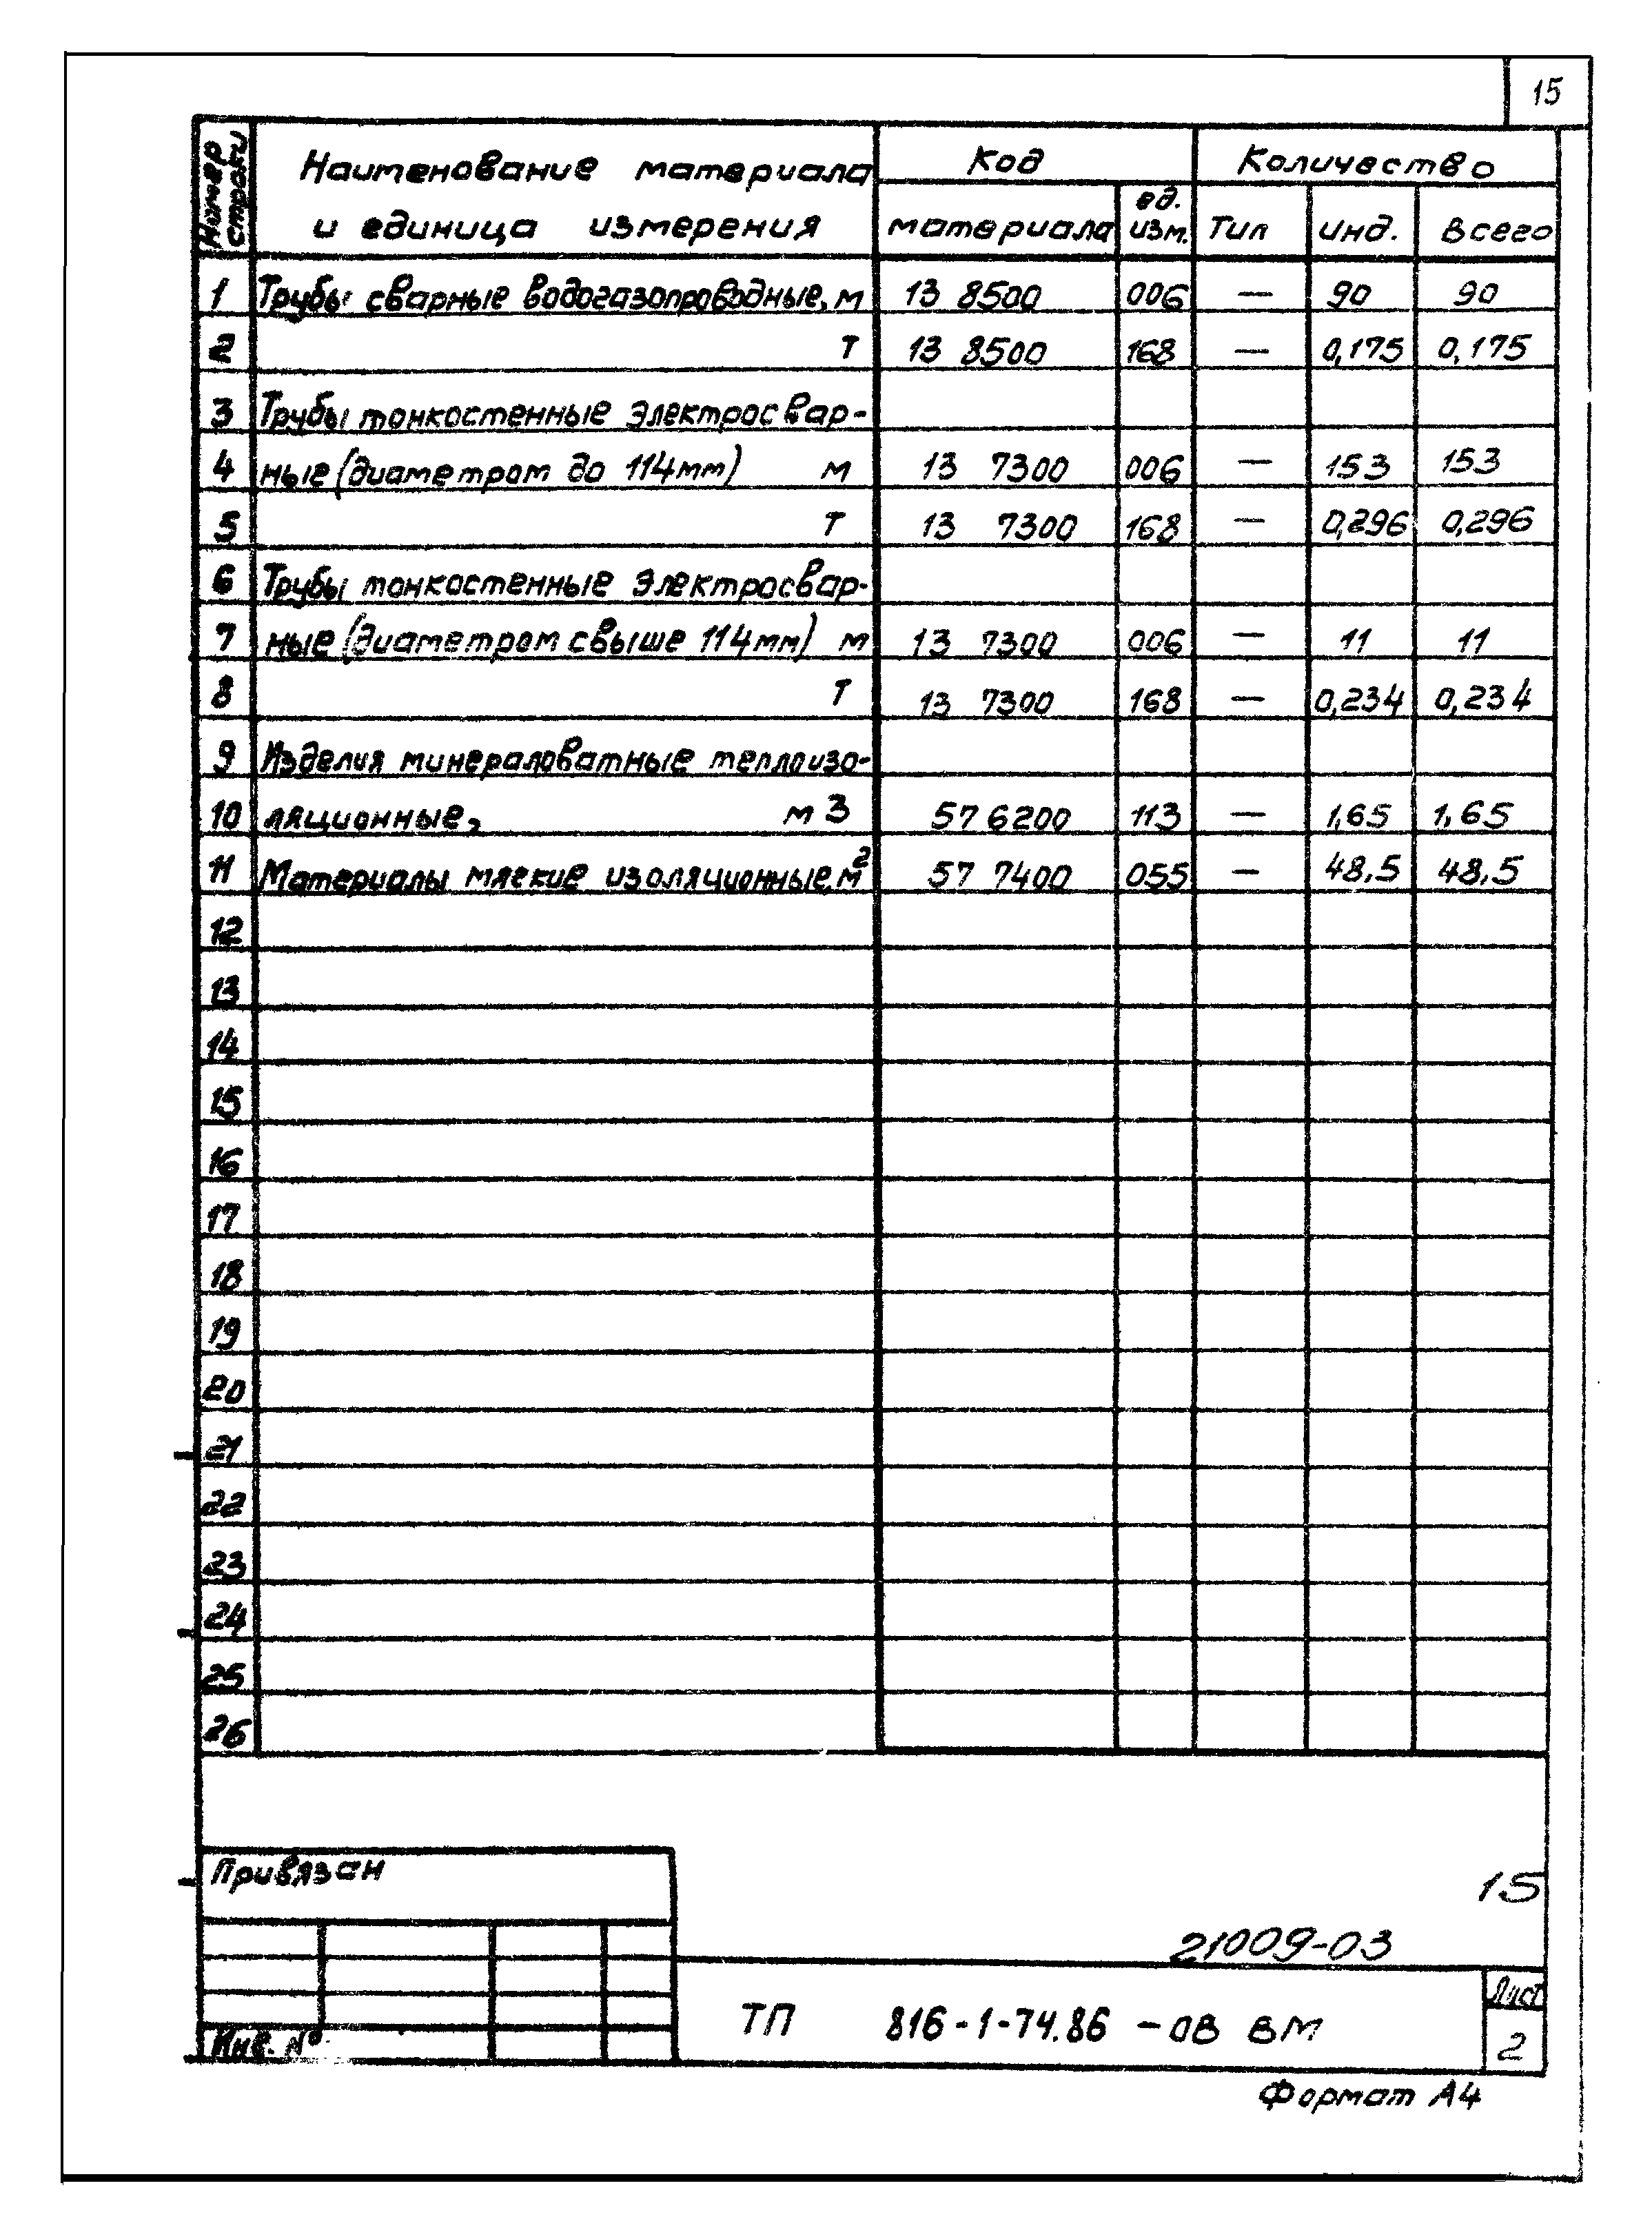 15
Номер строки Наименование материала Код Количество
и единица измерения материала ед. изм. Тип инд. Всего
1 Трубы сварные водогазопроводные, м 13 8500 006 — 90 90
2 т 13 8500 168 — 0,175 0,175
3 Трубы тонкостенные электросвар-
4 ные (диаметром до 114мм) м 13 7300 006 — 153 153
5 т 13 7300 168 — 0,296 0,296
6 Трубы тонкостенные электросвар-
7 ные (диаметром свыше 114мм) м 13 7300 006 — 11 11
8 т 13 7300 168 — 0,234 0,234
9 Изделия минераловатные теплоизо-
10 ляционные, м3 57 6200 113 — 1,65 1,65
11 Материалы мягкие изоляционные, м² 57 7400 055 — 48,5 48,5
12
13
14
15
16
17
18
19
20
21
22
23
24
25
26
Привязан
15
21009-03
Инв. №
ТП 816-1-74.86 - ОВ ВМ
Лист
2
Формат А4